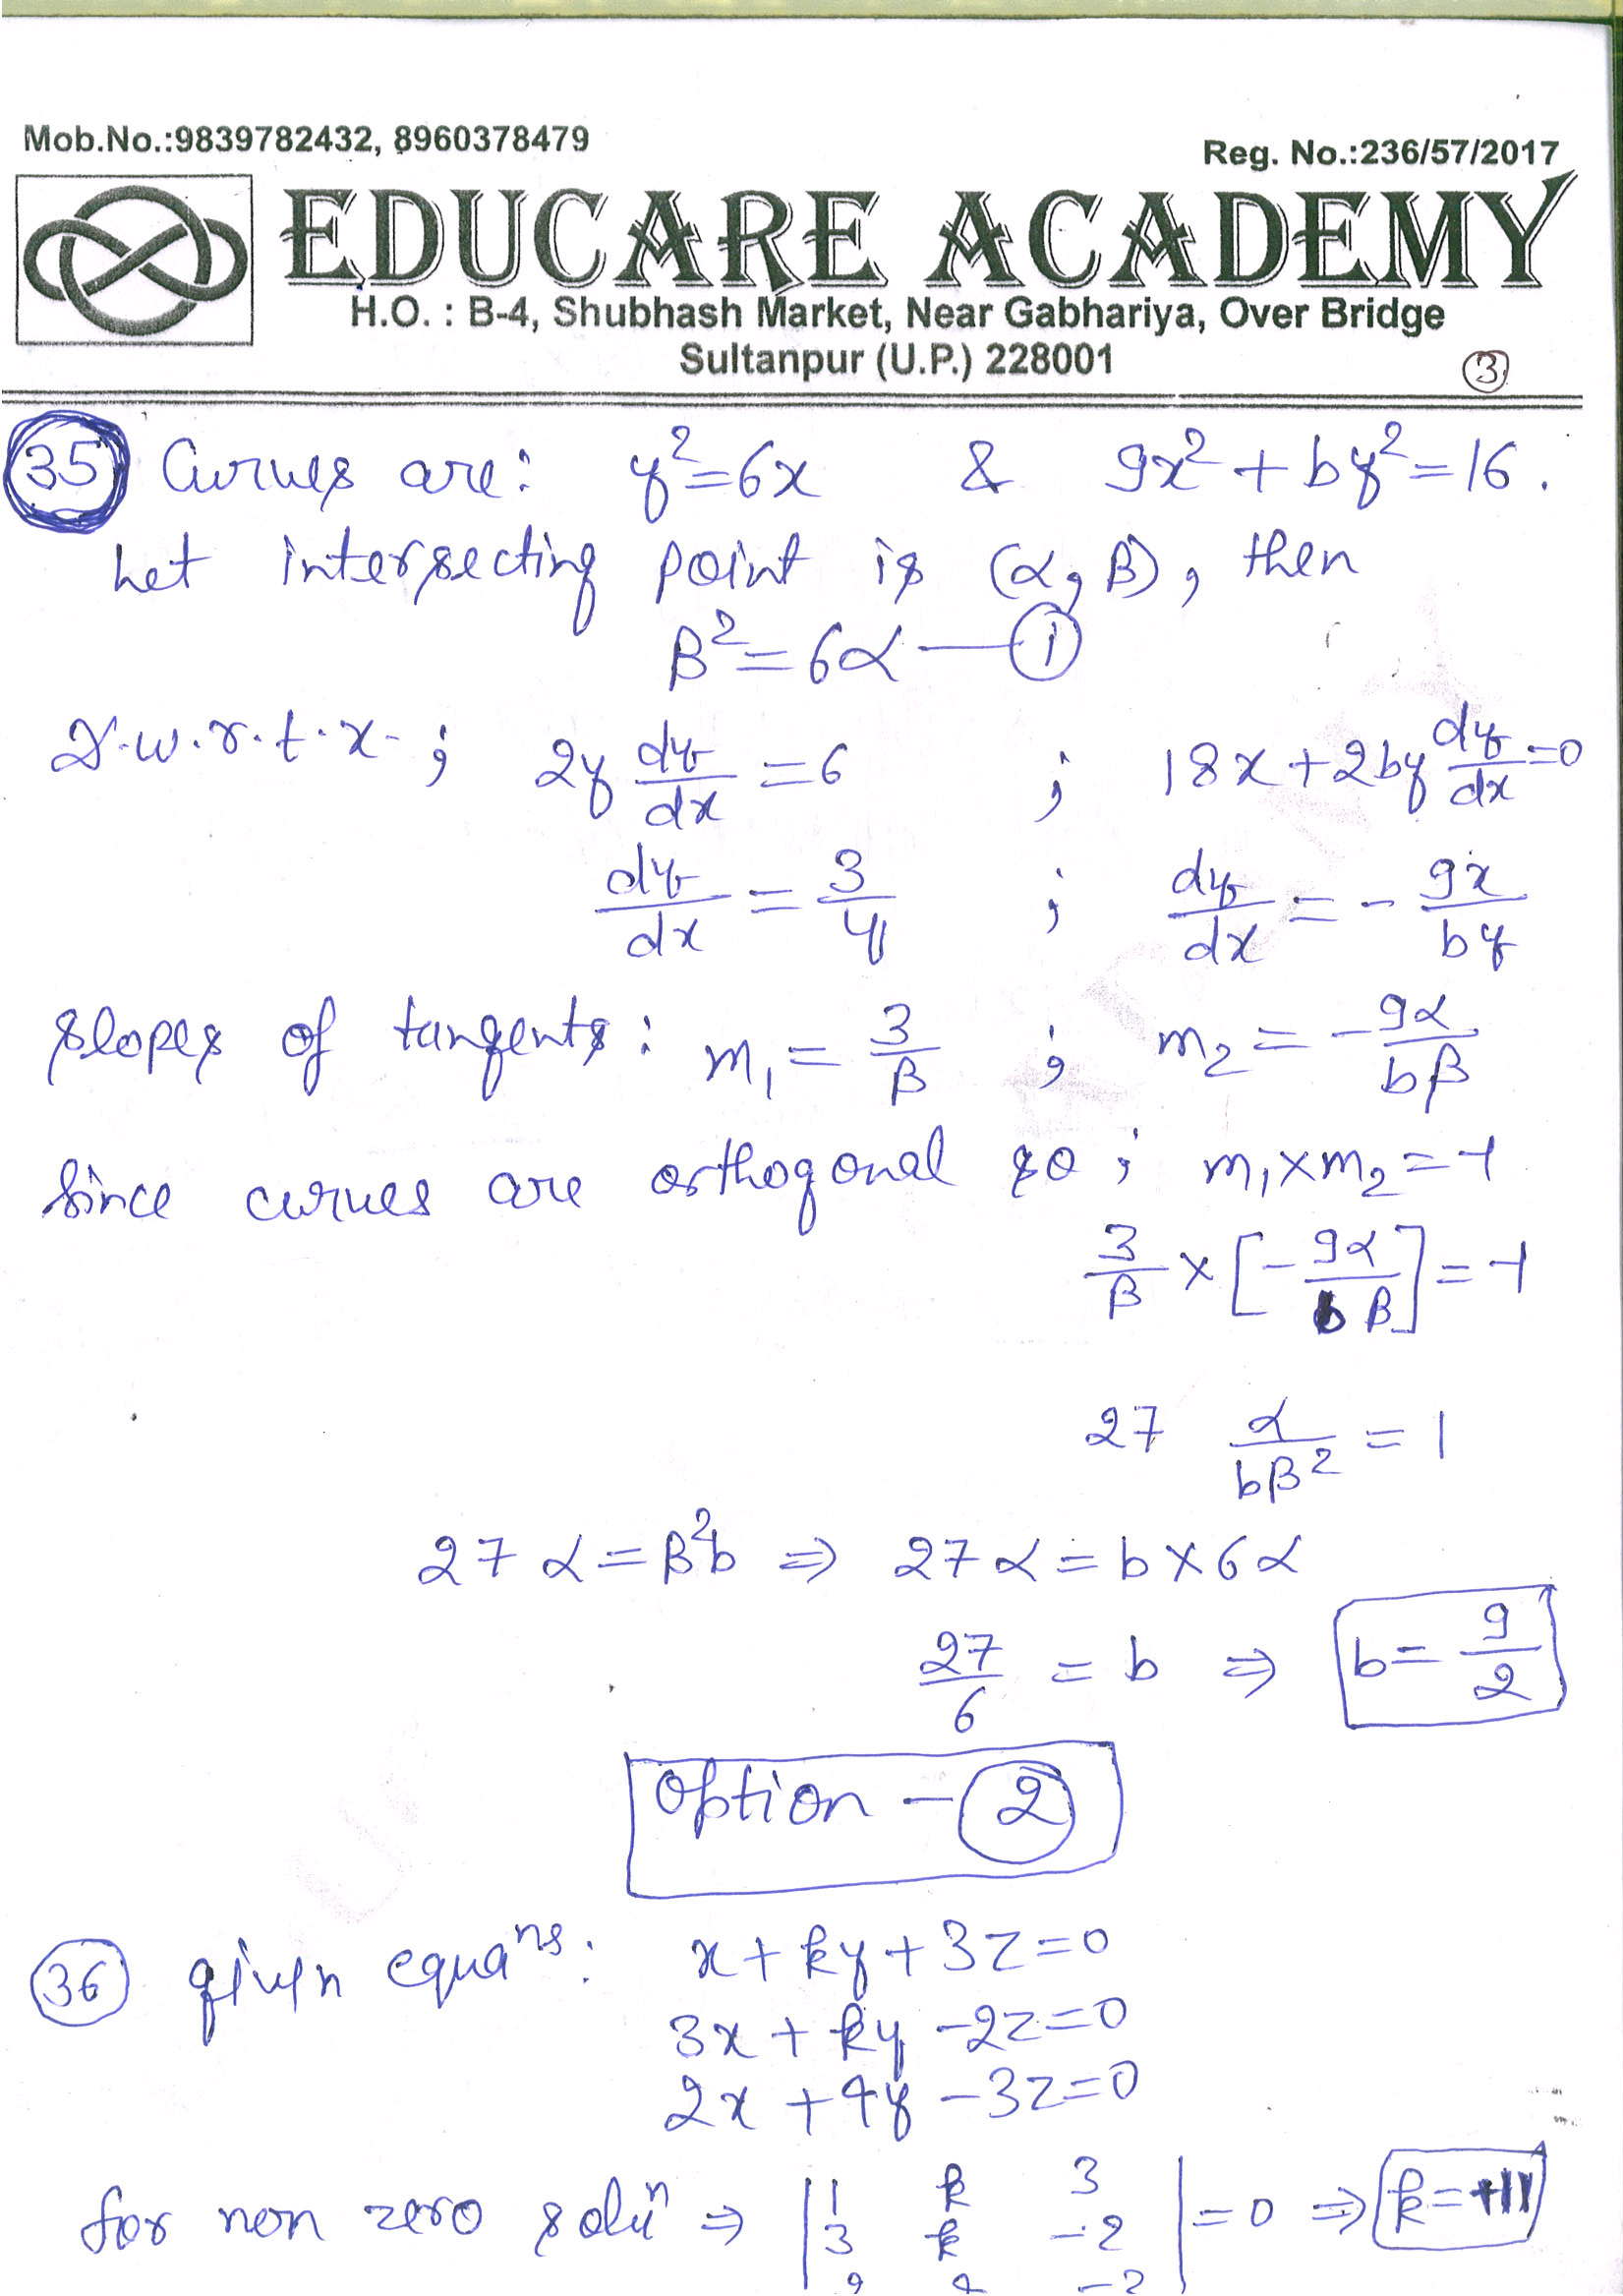 Mob.No.:9839782432, 8960378479
Reg. No.:236/57/2017
EDUCARE ACADEMY
H.O. : B-4, Shubhash Market, Near Gabhariya, Over Bridge
Sultanpur (U.P.) 228001
③
㉟ Curves are: y²=6x & 9x²+by²=16.
Let intersecting point is (α, β), then
β²=6α —①
D.w.r.t.x. ; 2y dy/dx =6 ; 18x+2by dy/dx=0
dy/dx = 3/y ; dy/dx = - 9x/by
slopes of tangents: m₁ = 3/β ; m₂ = - 9α/bβ
Since curves are orthogonal so ; m₁×m₂=-1
3/β × [- 9α/bβ] = -1
27 α/bβ² = 1
27 α = β²b ⇒ 27 α = b×6α
27/6 = b ⇒ b= 9/2
Option - ②
㊱ given equaⁿˢ: x+ky+3z=0
3x+ky-2z=0
2x+4y-3z=0
for non zero soluⁿ ⇒ |1 k 3
3 k -2| =0 ⇒ k=+11